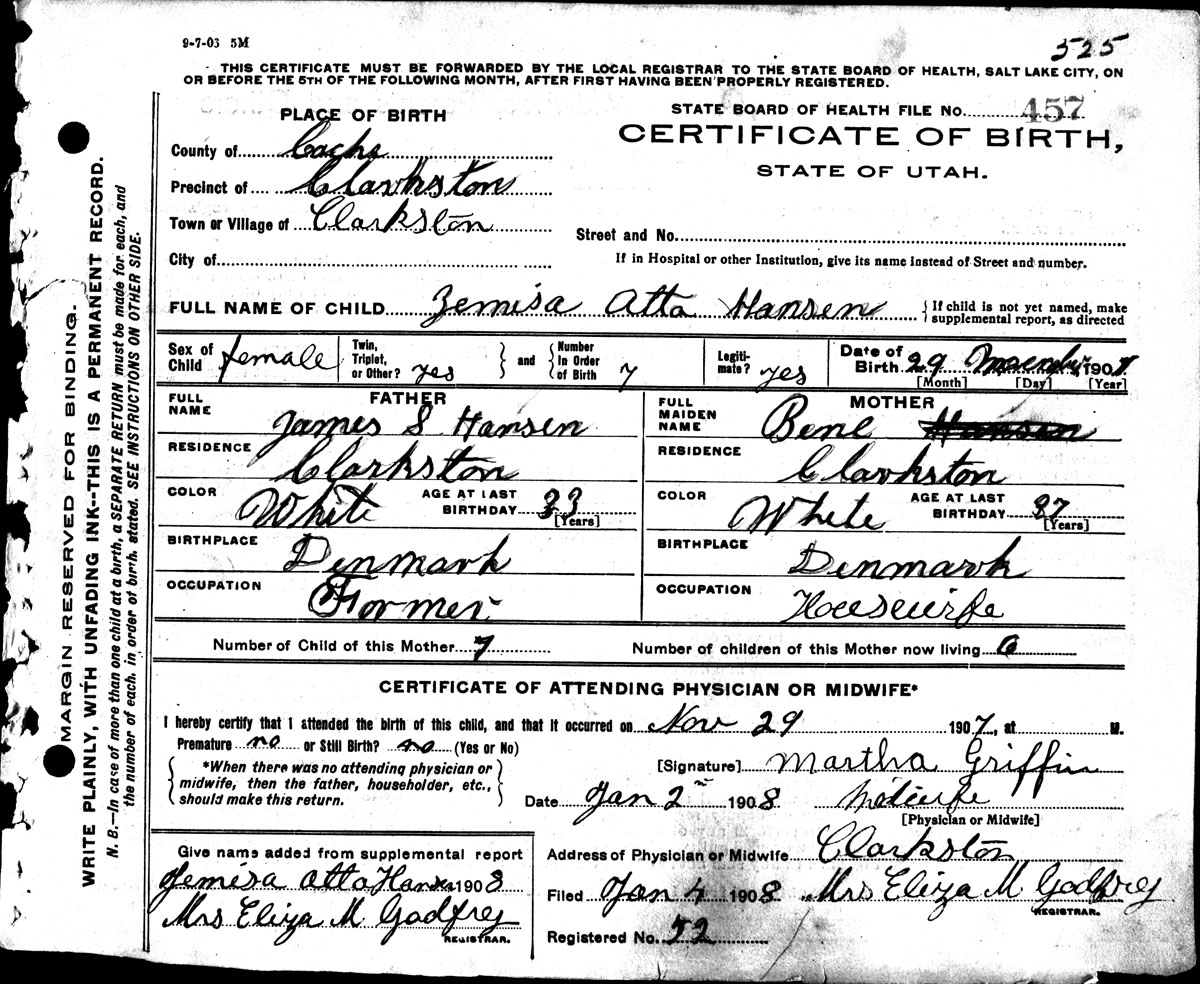 9-7-03 5M
525
THIS CERTIFICATE MUST BE FORWARDED BY THE LOCAL REGISTRAR TO THE STATE BOARD OF HEALTH, SALT LAKE CITY, ON
OR BEFORE THE 5TH OF THE FOLLOWING MONTH, AFTER FIRST HAVING BEEN PROPERLY REGISTERED.
PLACE OF BIRTH
STATE BOARD OF HEALTH FILE No. 457
CERTIFICATE OF BIRTH,
STATE OF UTAH.
County of Cache
Precinct of Clarkston
Town or Village of Clarkston
Street and No.
City of
If in Hospital or other Institution, give its name instead of Street and number.
FULL NAME OF CHILD Zemisa Atta Hansen
{If child is not yet named, make
supplemental report, as directed
Sex of Child female
Twin, Triplet, or Other? yes
and
Number In Order of Birth 7
Legitimate? yes
Date of Birth 29 190
[Month] [Day] [Year]
FATHER
FULL NAME James S Hansen
RESIDENCE Clarkston
COLOR White AGE AT LAST BIRTHDAY 33 [Years]
BIRTHPLACE Denmark
OCCUPATION Former
MOTHER
FULL MAIDEN NAME Bene Hansen
RESIDENCE Clarkston
COLOR White AGE AT LAST BIRTHDAY 37 [Years]
BIRTHPLACE Denmark
OCCUPATION Housewife
Number of Child of this Mother 7
Number of children of this Mother now living 6
CERTIFICATE OF ATTENDING PHYSICIAN OR MIDWIFE*
I hereby certify that I attended the birth of this child, and that it occurred on Nov 29 1907, at M.
Premature no or Still Birth? no (Yes or No)
*When there was no attending physician or
midwife, then the father, householder, etc.,
should make this return.
[Signature] Martha Griffin
Date Jan 2 1908 Midwife
[Physician or Midwife]
Give name added from supplemental report
Zemisa Atta Hansen 1908
Mrs Eliza M Godfrey
REGISTRAR.
Address of Physician or Midwife Clarkston
Filed Jan 4 1908 Mrs Eliza M Godfrey
REGISTRAR.
Registered No. 52
MARGIN RESERVED FOR BINDING.
WRITE PLAINLY, WITH UNFADING INK--THIS IS A PERMANENT RECORD.
N. B.—In case of more than one child at a birth, a SEPARATE RETURN must be made for each, and
the number of each, in order of birth, stated. SEE INSTRUCTIONS ON OTHER SIDE.